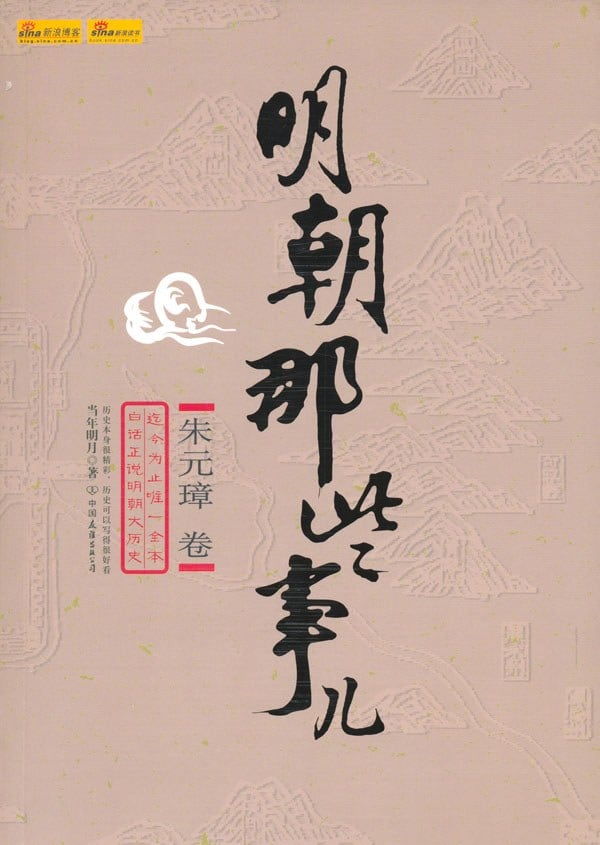 sina 新浪博客
blog.sina.com.cn
sina 新浪读书
book.sina.com.cn
明朝那些事儿
朱元璋 卷
迄今为止唯一全本
白话正说明朝大历史
历史本身很精彩，历史可以写得很好看
当年明月◎著
中国友谊出版公司